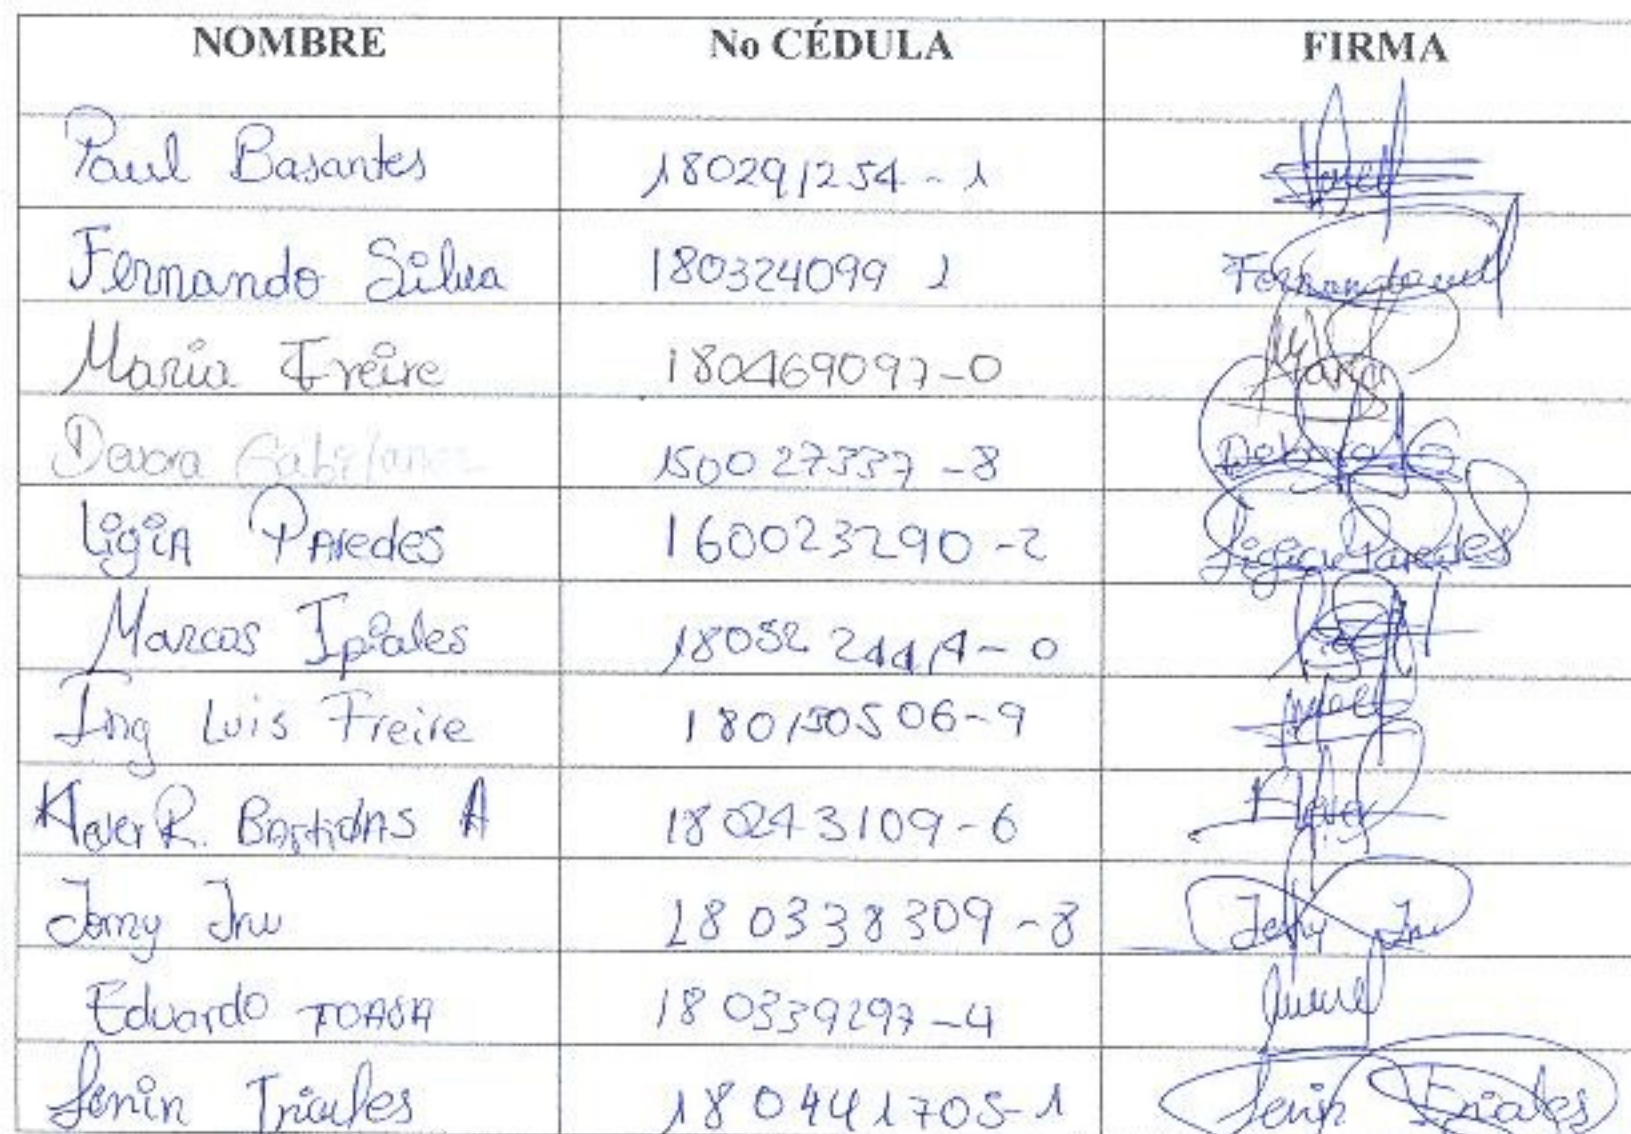 NOMBRE No CÉDULA FIRMA
Paul Basantes 180291254-1
Fernando Silva 180324099 1 Fernando
Maria Freire 180469097-0 Maria
Devora 150027337-8
Ligia Paredes 160023290-2 Ligia Paredes
Marcos Ipiales 18052 2444-0
Ing Luis Freire 180150506-9
Klever R. Bastidas A 180243109-6 Klever
180338309-8
Eduardo TOASA 180339297-4
Lenin 180441705-1 Lenin